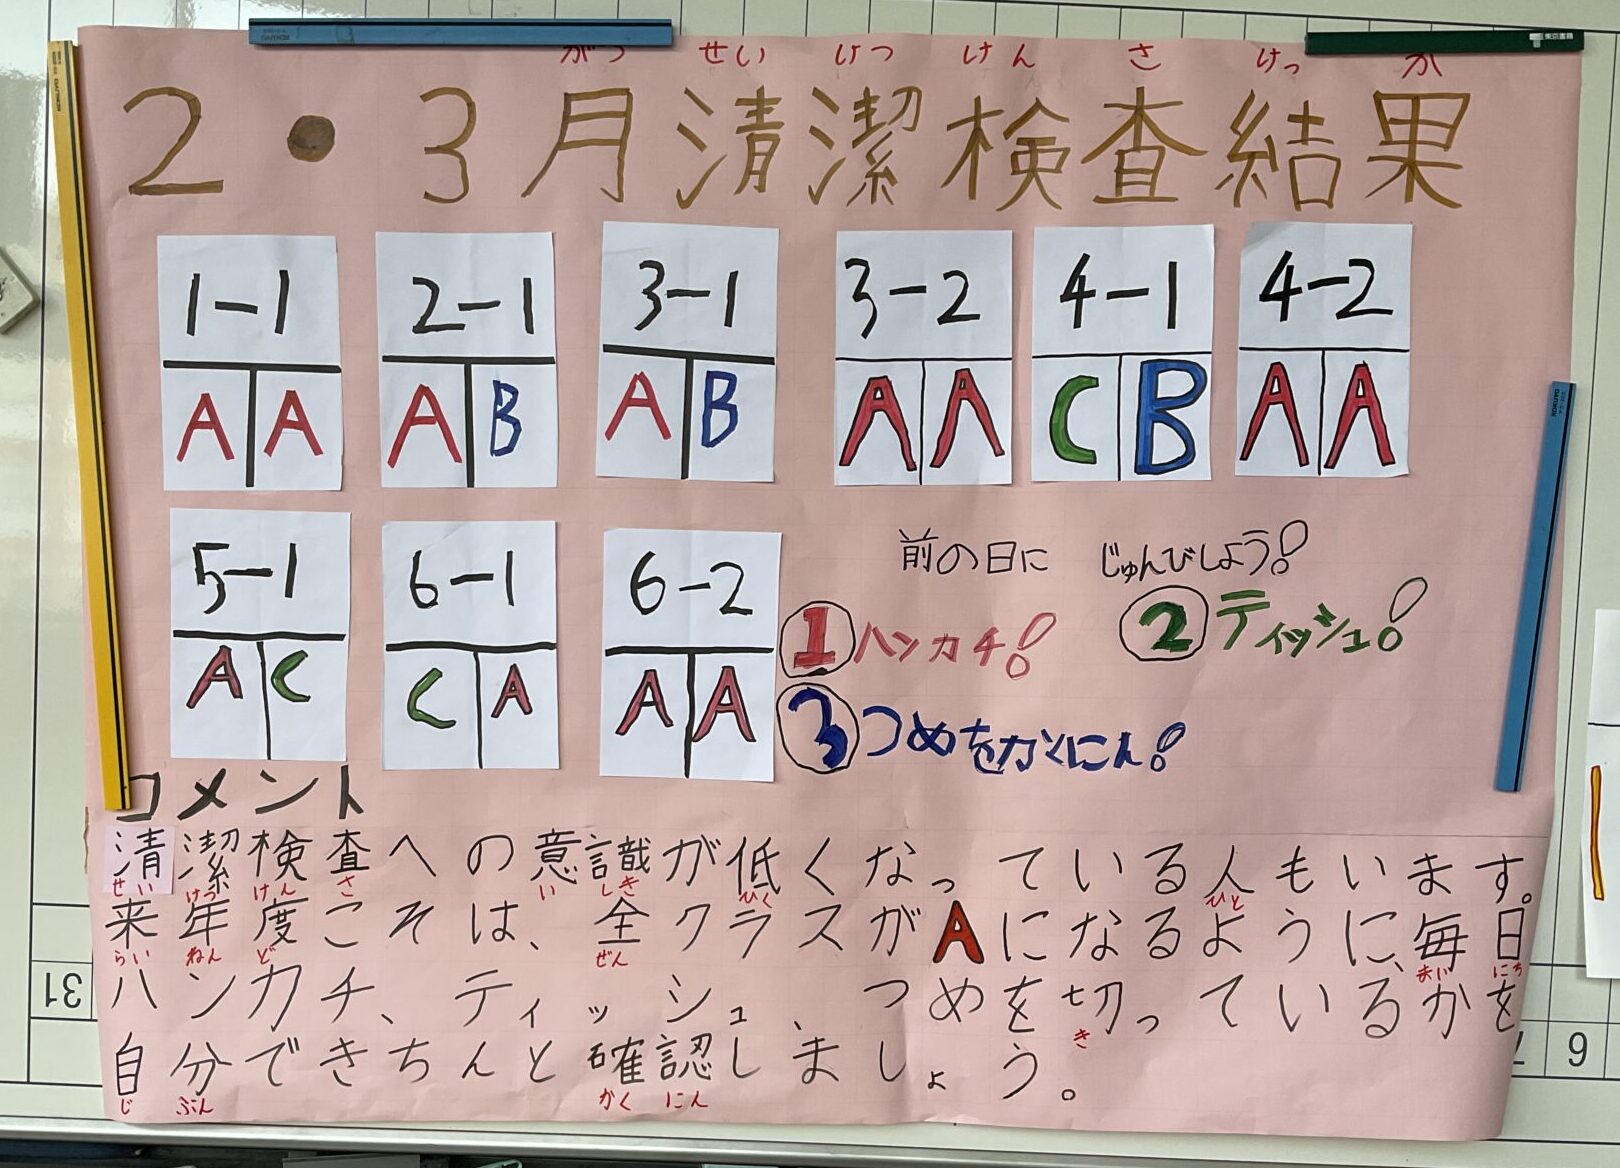 がつ せい けつ けん さ けっ か
2・3月清潔検査結果
1-1 2-1 3-1 3-2 4-1 4-2
A A A B A B A A C B A A
5-1 6-1 6-2
A C C A A A
前の日に じゅんびしよう!
①ハンカチ! ②ティッシュ!
③つめをかくにん!
コメント
清潔検査への意識が低くなっている人もいます。
せい けつ けん さ い しき ひく ひと
来年度こそは、全クラスがAになるように、毎日
らい ねん ど ぜん まい にち
ハンカチ、ティッシュ、つめを切っているかを
き
自分できちんと確認しましょう。
じ ぶん かく にん
31
6